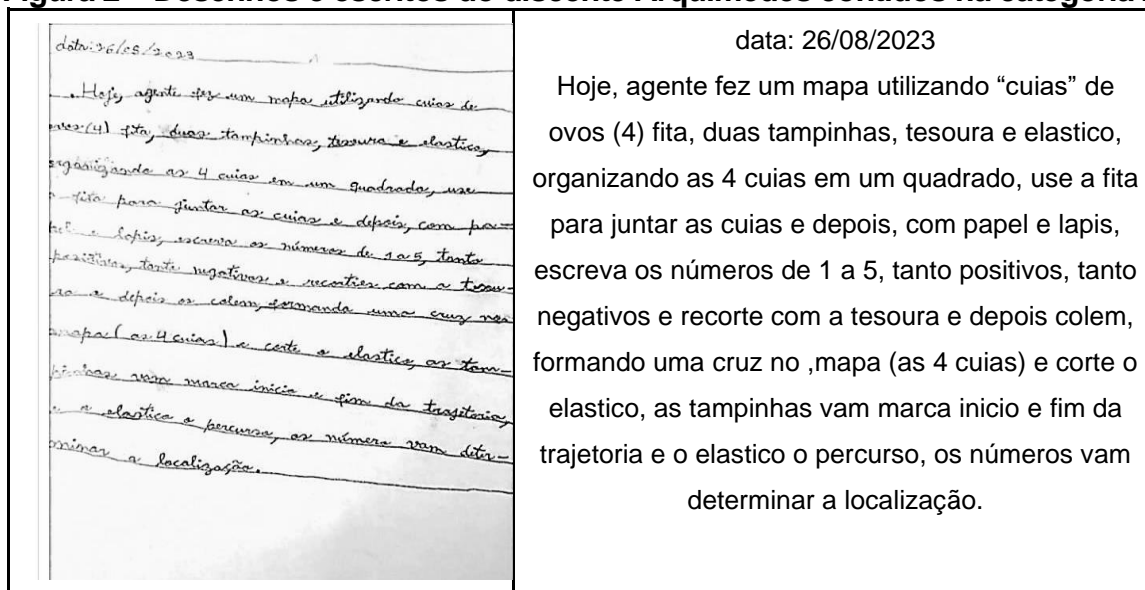 data: 26/08/2023
Hoje, agente fez um mapa utilizando cuias de
ovos (4) fita, duas tampinhas, tesoura e elastico,
organizando as 4 cuias em um quadrado, use
a fita para juntar as cuias e depois, com pa-
pel e lapis, escreva os números de 1 a 5, tanto
positivos, tanto negativos e recortes com a tesou-
ra e depois os colem, formando uma cruz no
mapa (as 4 cuias) e corte o elastico, as tam-
pinhas vam marca inicio e fim da trajetoria,
e o elastico o percurso, os número vam deter-
minar a localização.
data: 26/08/2023
Hoje, agente fez um mapa utilizando “cuias” de
ovos (4) fita, duas tampinhas, tesoura e elastico,
organizando as 4 cuias em um quadrado, use a fita
para juntar as cuias e depois, com papel e lapis,
escreva os números de 1 a 5, tanto positivos, tanto
negativos e recorte com a tesoura e depois colem,
formando uma cruz no ,mapa (as 4 cuias) e corte o
elastico, as tampinhas vam marca inicio e fim da
trajetoria e o elastico o percurso, os números vam
determinar a localização.